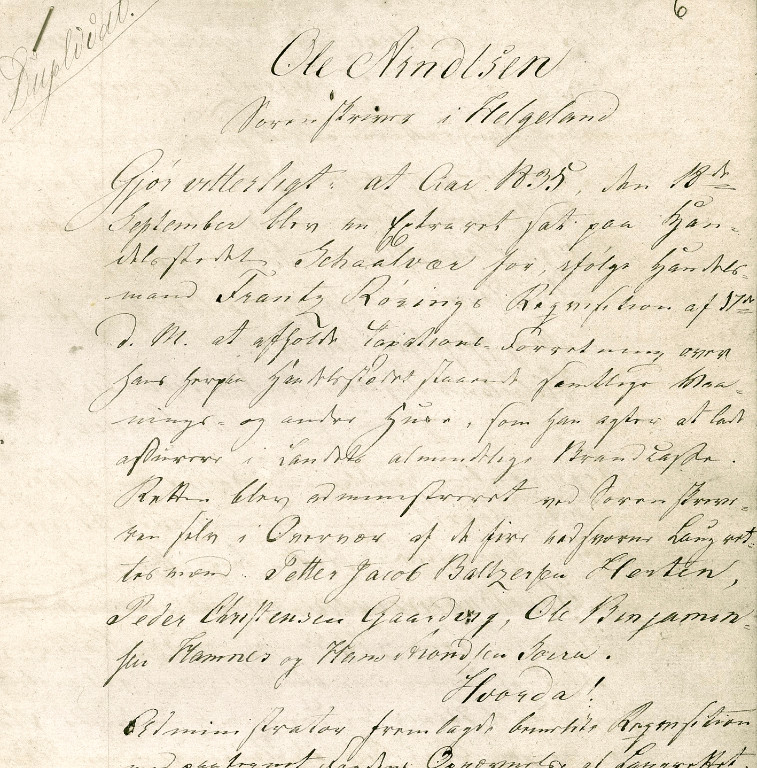 6
Duplicat.
Ole Arndtsen
Sorenskriver i Helgeland
Gjør vitterligt: at Aar 1835, den 18de
September blev en Extraret sat paa Han-
delsstedet Schaalvær for, ifølge Handels-
mand Frantz Røsings Reqvisition af 17de
d. M. at afholde Taxations-Forretning over
hans herpaa Handelsstedet staaende samtlige Vaa-
nings- og andre Huse, som han agter at lade
assurere i Landets almindelige Brandcasse.
Retten blev administreret ved Sorenskrive-
ren selv i Overvær af de fire eedsvorne Laugret-
tesmænd. Petter Jacob Baltzersen
Peder Christensen Ole Benjamin-
sen Hamnes og Hans
Hvorda!
Administrator fremlagde bemeldte Reqvisition
med paategnet Opnævnelse af Laugrettet.